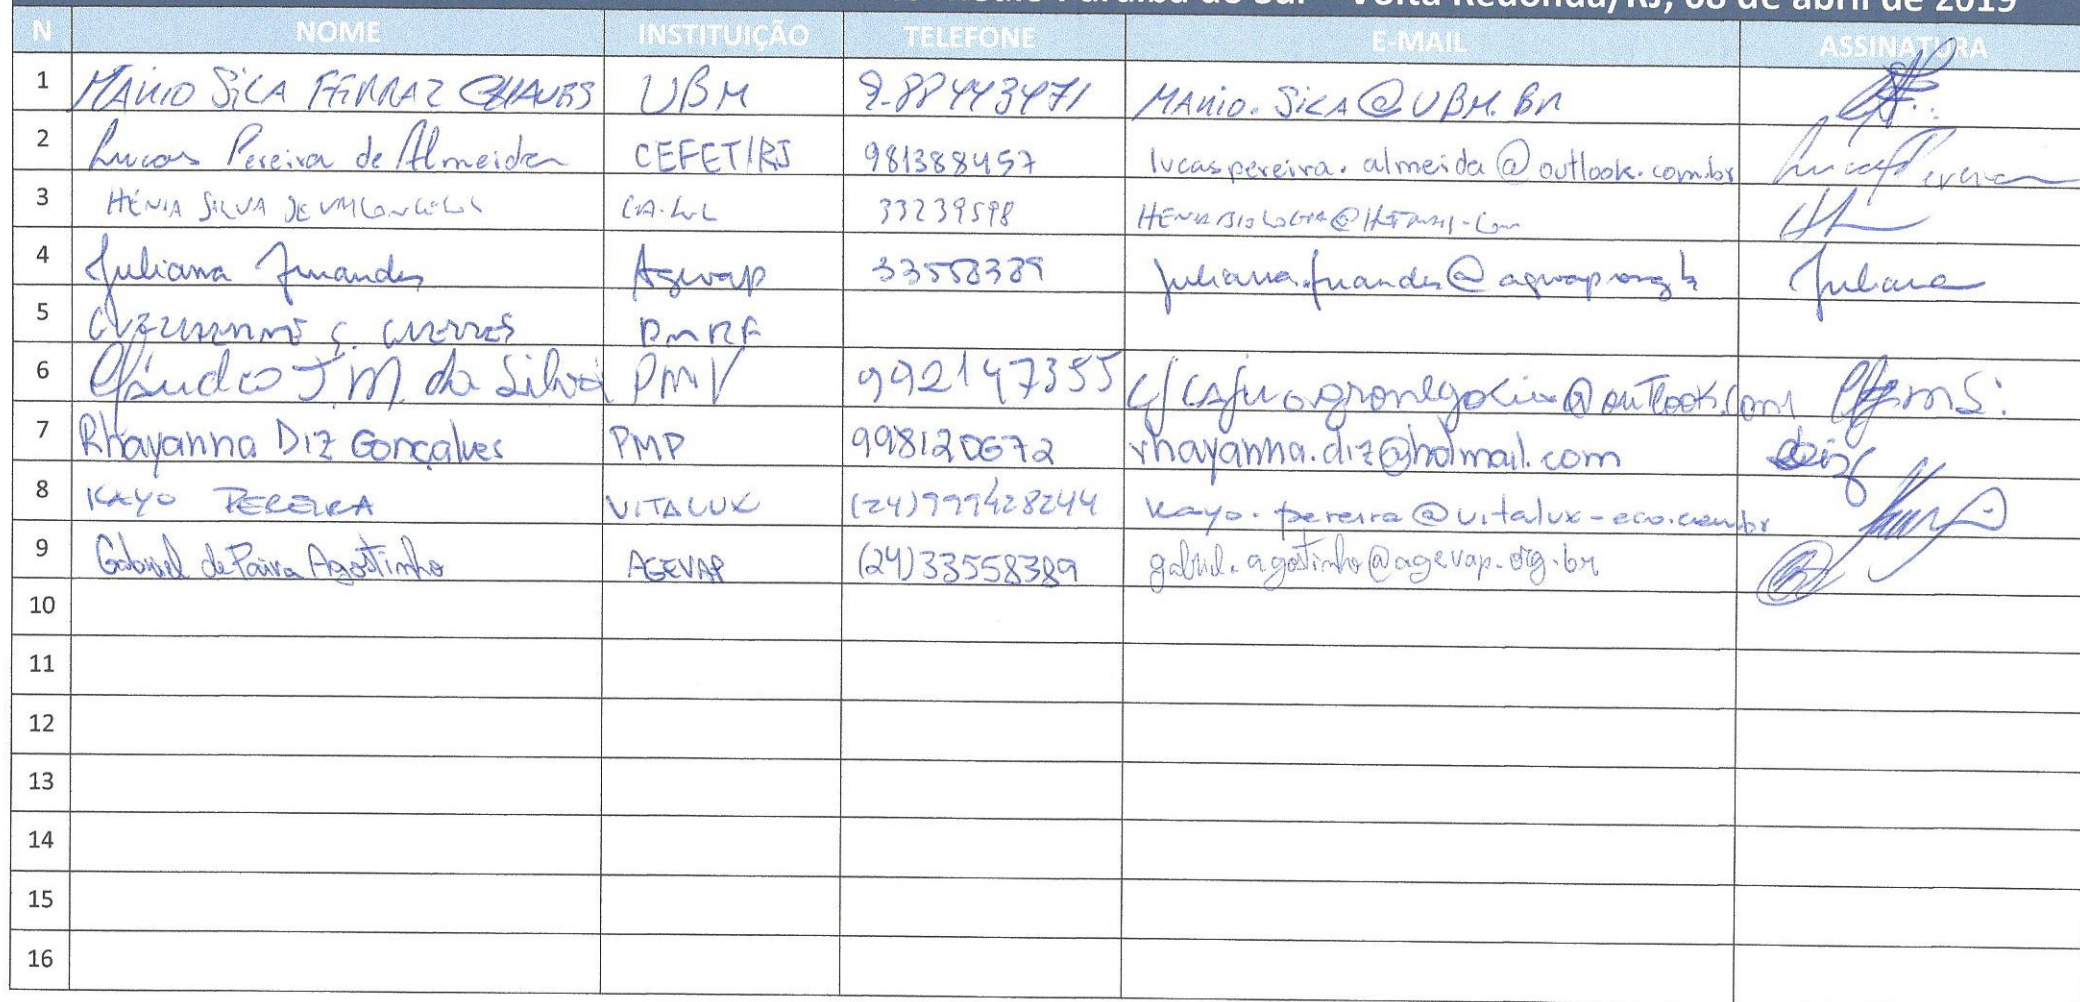 Paraíba do Sul - Volta Redonda/RJ, 08 de abril de 2019
N NOME INSTITUIÇÃO TELEFONE E-MAIL ASSINATURA
1 MARIO SICA FERRAZ CHAVES UBM 9.88443471 MARIO.SICA@UBM.BR
2 Lucas Pereira de Almeida CEFET/RJ 981388457 lucaspereira.almeida@outlook.com.br Lucas Pereira
3 HÉNIA SILVA DE VASCONCELOS 33239598
4 Juliana Fernandes Agevap 33558389 juliana.fernandes@agevap.org.br Juliana
5 PMRF
6 Cláudio J M da Silva PMV 992147355
7 Rhayanna Diz Gonçalves PMP 998120672 rhayanna.diz@hotmail.com diz
8 KAYO PEREIRA VITALUX (24)999428244 kayo.pereira@vitalux-eco.com.br
9 Gabriel de Paiva Agostinho AGEVAP (24)33558389 gabriel.agostinho@agevap.org.br
10
11
12
13
14
15
16